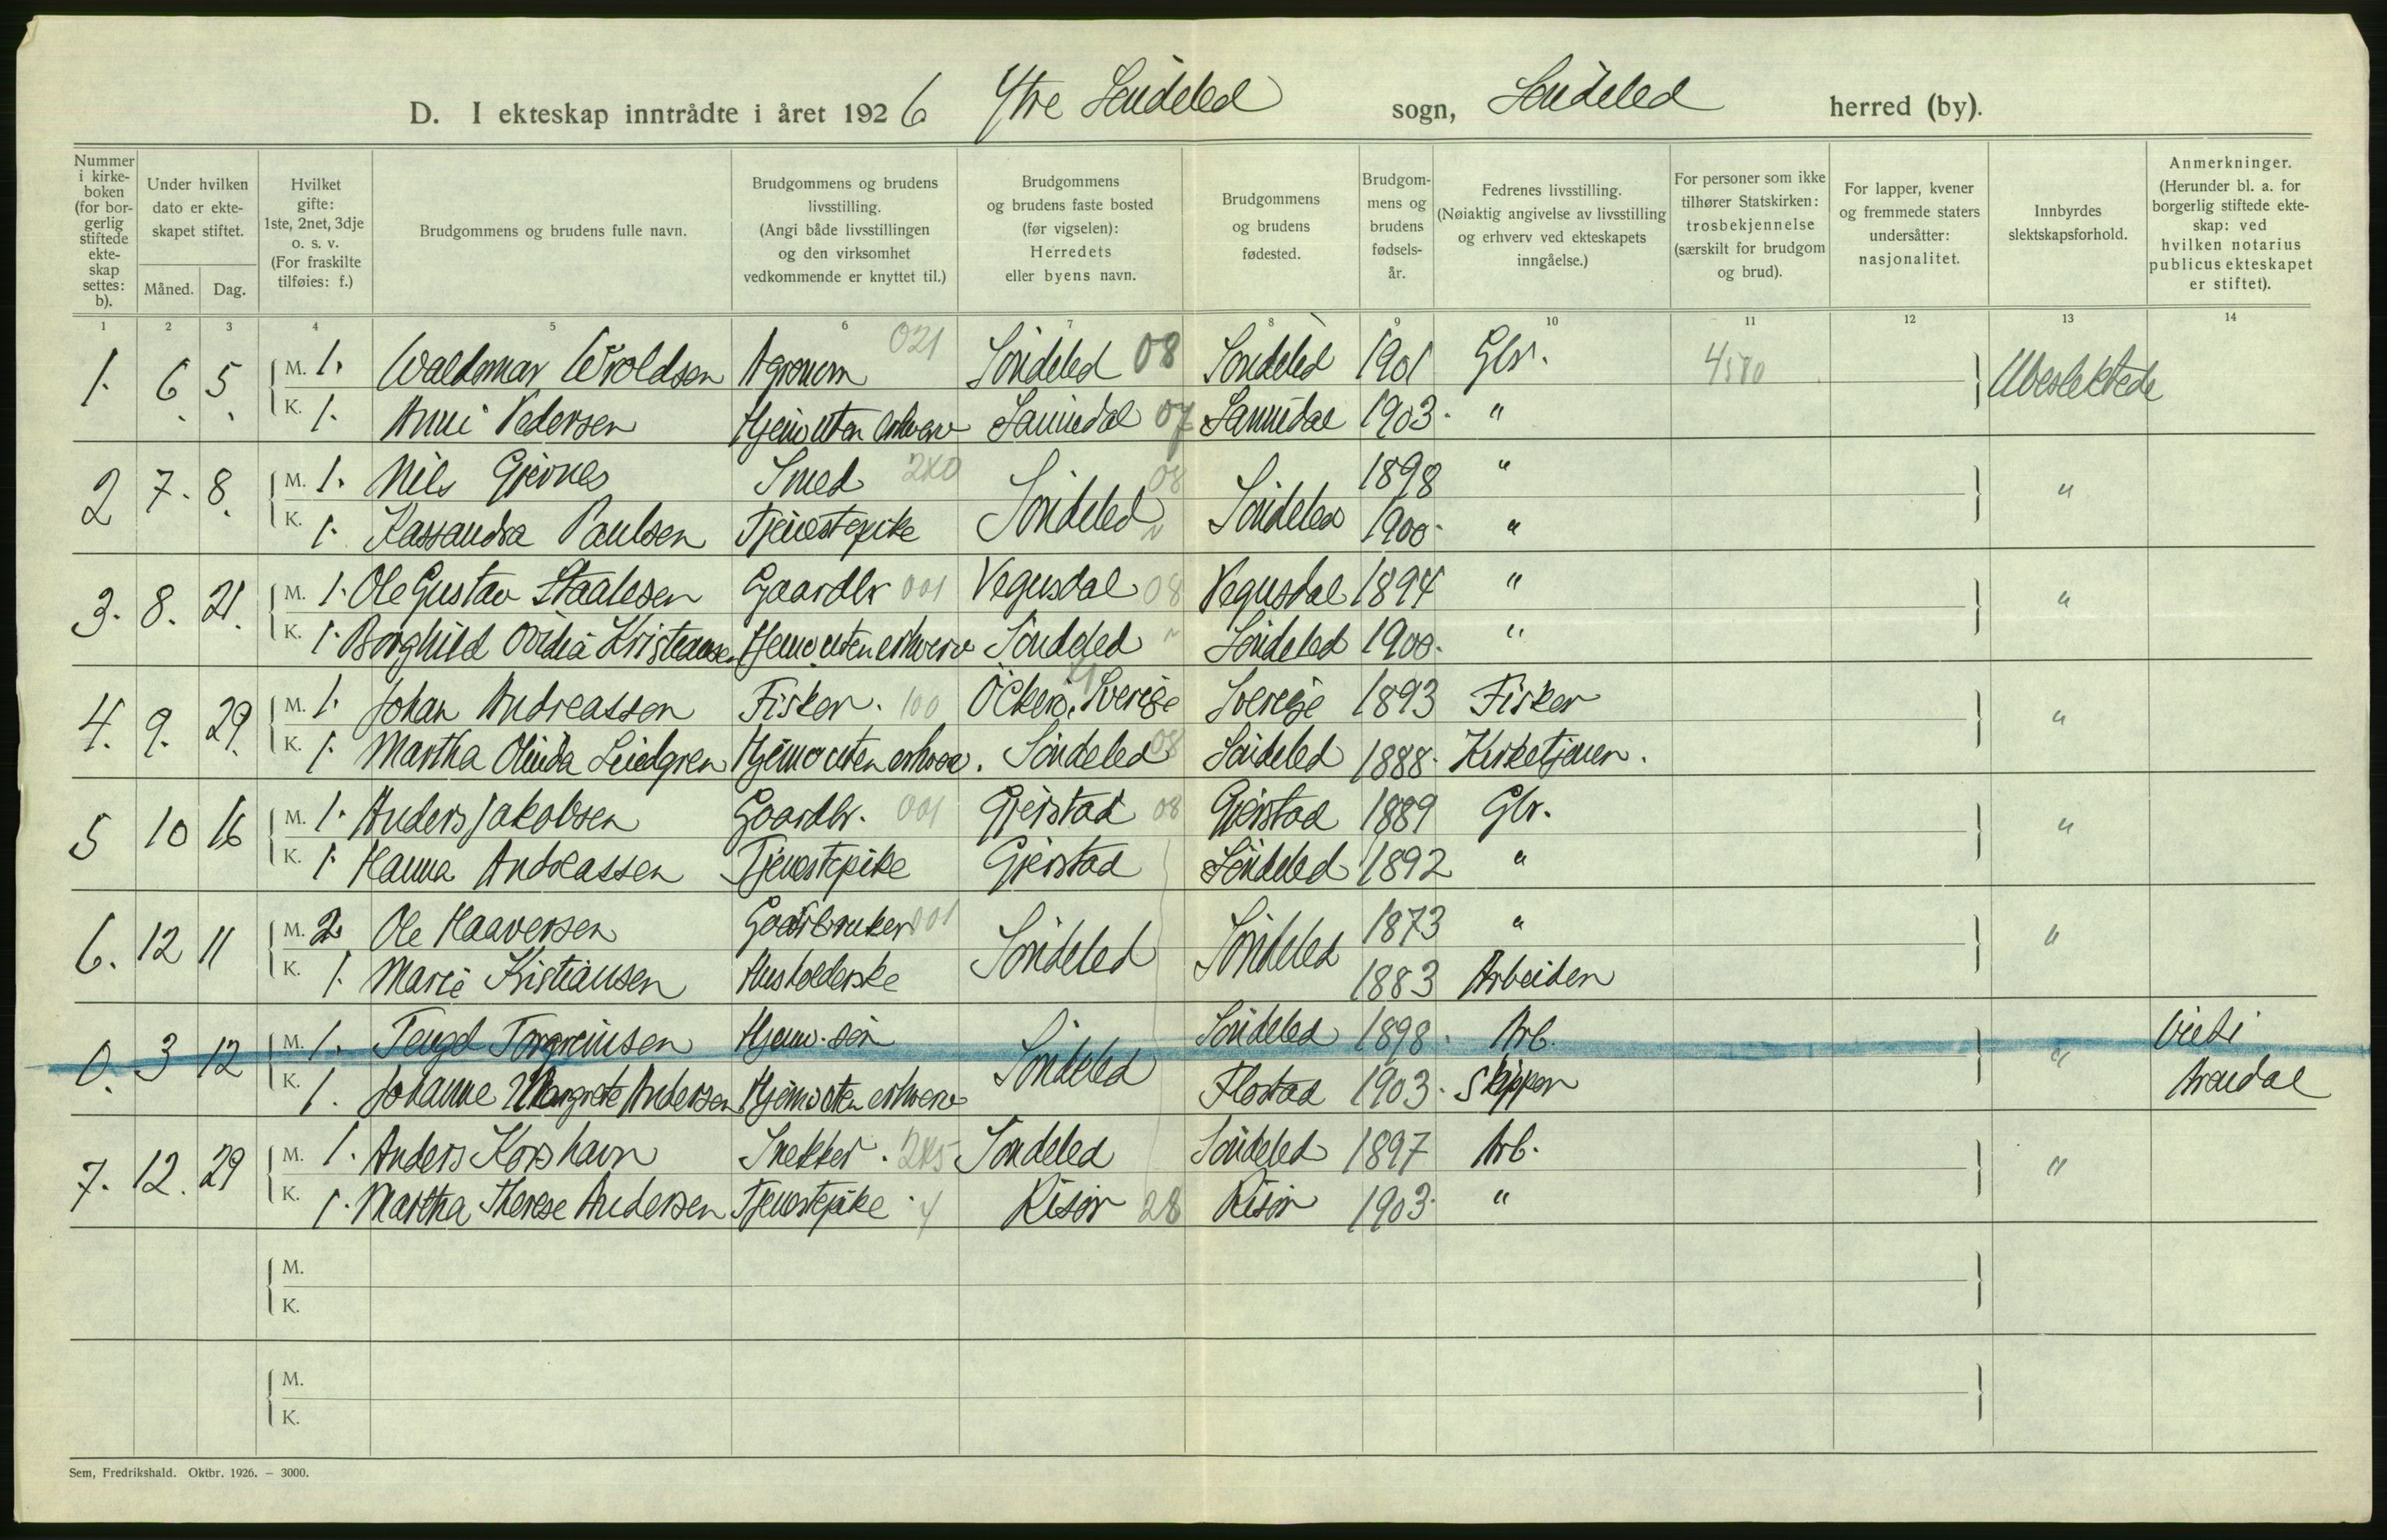 D. I ekteskap inntrådte i året 1926 Ytre Søndeled sogn, Søndeled herred (by).
Nummer i kirke-boken (for bor-gerlig stiftede ekte-skap settes: b).
Under hvilken dato er ekte-skapet stiftet.
Måned. Dag.
Hvilket gifte: 1ste, 2net, 3dje o. s. v. (For fraskilte tilføies: f.)
Brudgommens og brudens fulle navn.
Brudgommens og brudens livsstilling. (Angi både livsstillingen og den virksomhet vedkommende er knyttet til.)
Brudgommens og brudens faste bosted (før vigselen): Herredets eller byens navn.
Brudgommens og brudens fødested.
Brudgom-mens og brudens fødsels-år.
Fedrenes livsstilling. (Nøiaktig angivelse av livsstilling og erhverv ved ekteskapets inngåelse.)
For personer som ikke tilhører Statskirken: trosbekjennelse (særskilt for brudgom og brud).
For lapper, kvener og fremmede staters undersåtter: nasjonalitet.
Innbyrdes slektskapsforhold.
Anmerkninger. (Herunder bl. a. for borgerlig stiftede ekte-skap: ved hvilken notarius publicus ekteskapet er stiftet).
1 2 3 4 5 6 7 8 9 10 11 12 13 14
1. 6. 5. M. 1. Waldemar Wroldsen Agronom 021 Søndeled 08 Søndeled 1901 Gbr. 4580 Ubeslektede
K. 1. Anni Pedersen Hjemo uten erhverv Sannidal 07 Sannidal 1903. "
2 7. 8. M. 1. Nils Gjernes Smed 240 Søndeled 08 Søndeled 1898 " "
K. 1. Kassandra Paulsen Tjenestepike " 1900. "
3. 8. 21. M. 1. Ole Gustav Staalesen Gaardbr 001 Vegusdal 08 Vegusdal 1894 " "
K. 1. Borghild Ovidia Kristiansen Hjemo uten erhverv Søndeled " Søndeled 1900. "
4. 9. 29. M. 1. Johan Andreassen Fisker. 100 Öckerö, Sverige Sverige 1893 Fisker "
K. 1. Martha Olinda Lindgren Hjemo uten erhverv. Søndeled 08 Søndeled 1888. Kirketjener.
5 10 16 M. 1. Anders Jakobsen Gaardbr. 001 Gjerstad 08 Gjerstad 1889 Gbr. "
K. 1. Hanna Andreassen Tjenestepike Gjerstad Søndeled 1892 "
6. 12 11 M. 2. Ole Haaversen Gaardbruker 001 Søndeled Søndeled 1873 " "
K. 1. Marie Kristiansen Husholderske 1883 Arbeider
0. 3 12 M. 1. Tengel Torgrimsen Hjemv. søn Søndeled Søndeled 1898. Arb. " Viet i
K. 1. Johanne Margrete Andersen Hjemo uten erhverv Flostad 1903. Skipper Arendal
7. 12. 29 M. 1. Anders Korshavn Snekker. 245 Søndeled Søndeled 1897 Arb. "
K. 1. Martha Therese Andersen Tjenestepike. 4 Risør 28 Risør 1903. "
M.
K.
M.
K.
Sem, Fredrikshald. Oktbr. 1926. – 3000.